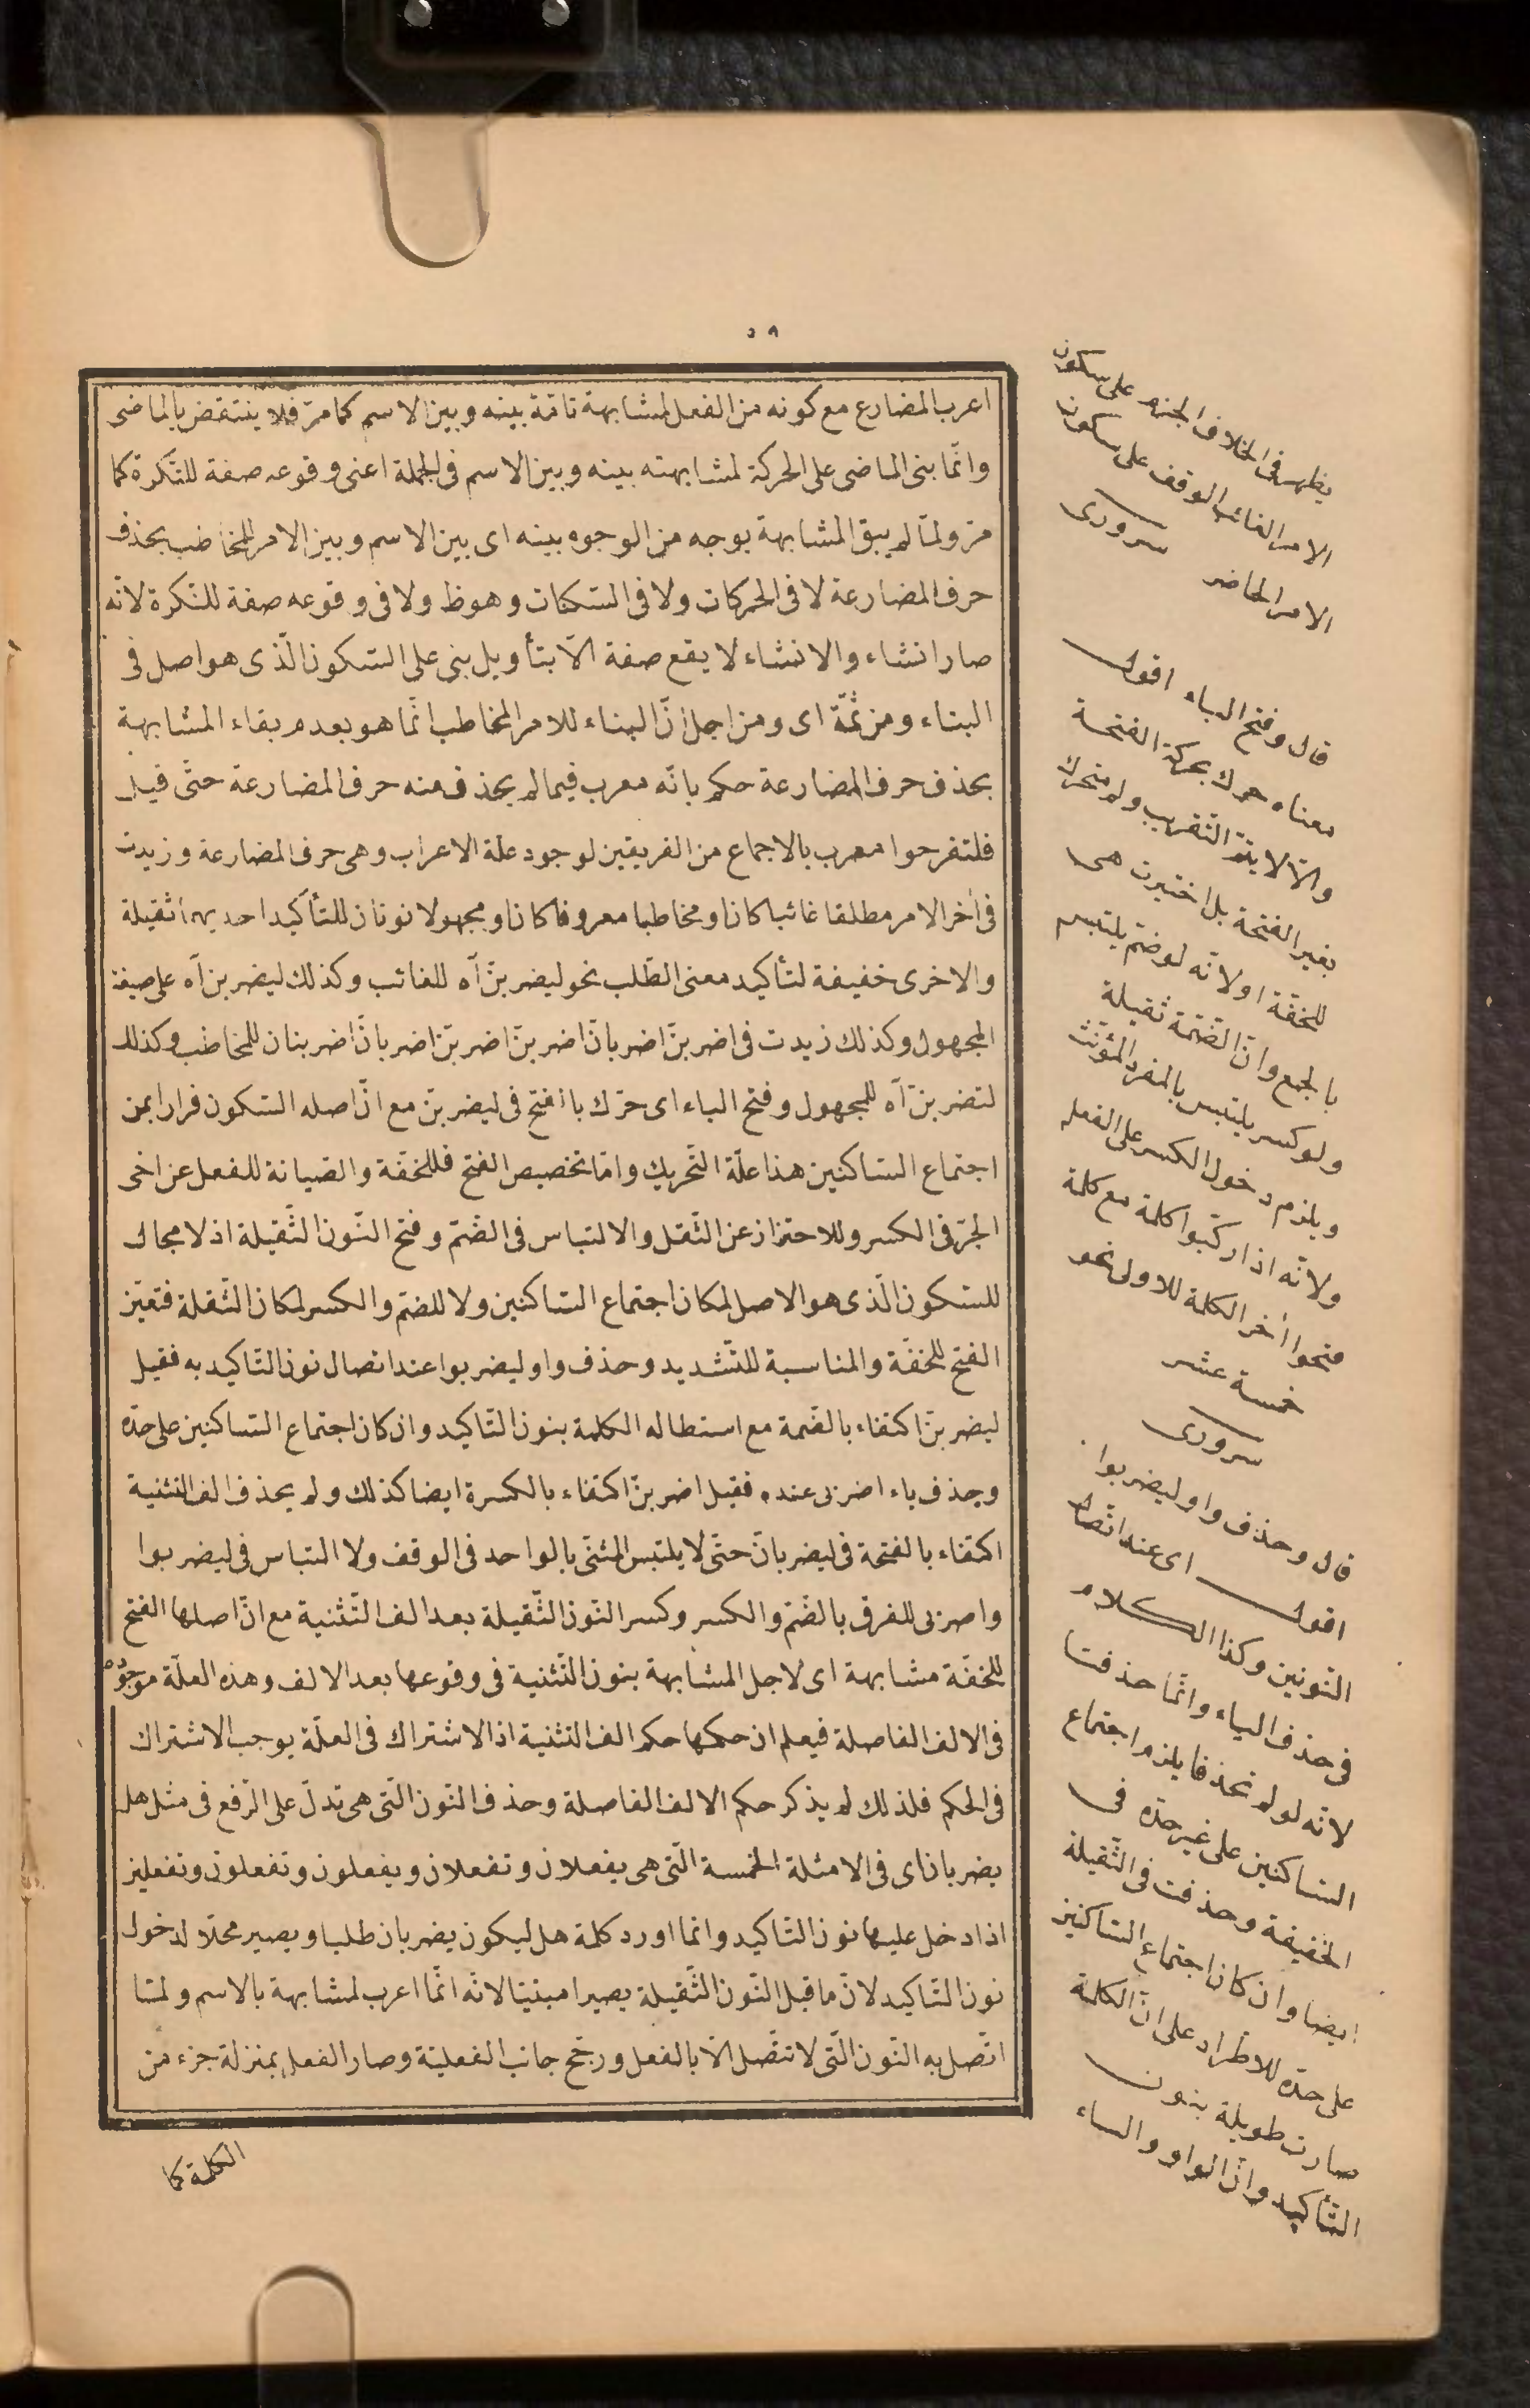 ٥٩
اعرب المضارع مع كونه من الفعل لمشابهة تامّة بينه وبين الاسم كما مرّ فلا ينتقض بالماضى
وانّما بنى الماضى على الحركة لمشابهته بينه وبين الاسم فى الجملة اعنى وقوعه صفة للنّكرة كما
مرّ ولمّا لم يبق المشابهة بوجه من الوجوه بينه اى بين الاسم وبين الامر المخاطب بحذف
حرف المضارعة لا فى الحركات ولا فى السّكنات وهوظ ولا فى وقوعه صفة للنّكرة لانّه
صار انشاء والانشاء لا يقع صفة الّا بتأويل بنى على السّكون الّذى هو اصل فى
البناء ومن ثمّة اى ومن اجل انّ البناء للامر المخاطب انّما هو بعدم بقاء المشابهة
بحذف حرف المضارعة حكم بانّه معرب فيما لم يحذف منه حرف المضارعة حتّى قيل
فلتفرحوا معرب بالاجماع من الفريقين لوجود علّة الاعراب وهى حرف المضارعة وزيدت
فى اخر الامر مطلقا غائبا كان او مخاطبا معروفا كان او مجهولا نونان للتأكيد احديهما ثقيلة
والاخرى خفيفة لتأكيد معنى الطّلب نحو ليضربنّ آه للغائب وكذلك ليضربن آه على صيغة
المجهول وكذلك زيدت فى اضربنّ اضربانّ اضربنّ اضربنّ اضربانّ اضربنان للمخاطب وكذلك
لتضربنّ آه للمجهول وفتح الباء اى حرّك بالفتح فى ليضربنّ مع انّ اصله السّكون فرارا من
اجتماع السّاكنين هذا علّة التّحريك وامّا تخصيص الفتح فللخفّة والصّيانة للفعل عن اخى
الجرّ فى الكسر وللاحتراز عن الثّقل والالتباس فى الضّمّ وفتح النّون الثّقيلة اذ لا مجال
للسّكون الّذى هو الاصل لمكان اجتماع السّاكنين ولا للضمّ والكسر لمكان الثّقلة فتعيّن
الفتح للخفّة والمناسبة للتّشديد وحذف واو ليضربوا عند اتصال نون التّاكيد به فقيل
ليضربنّ اكتفاء بالضّمة مع استطاله الكلمة بنون التّاكيد وان كان اجتماع السّاكنين على حدّه
وحذف ياء اضربى عنده فقيل اضربنّ اكتفاء بالكسرة ايضا كذلك ولم يحذف الف التثنية
اكتفاء بالفتحة فى ليضربانّ حتّى لا يلتبس المثنّى بالواحد فى الوقف ولا التباس فى ليضربوا
واضربى للفرق بالضّمّ والكسر وكسر النّون الثّقيلة بعد الف التّثنية مع انّ اصلها الفتح
للخفّة مشابهة اى لاجل المشابهة بنون التّثنية فى وقوعها بعد الالف وهذه العلّة موجودة
فى الالف الفاصلة فيعلم ان حكمها حكم الف التثنية اذ الاشتراك فى العلّة يوجب الاشتراك
فى الحكم فلذلك لم يذكر حكم الالف الفاصلة وحذف النّون الّتى هى تدلّ على الرّفع فى مثل هل
يضربان اى فى الامثلة الخمسة الّتى هى يفعلان وتفعلان ويفعلون وتفعلون وتفعلين
اذا دخل عليها نون التّاكيد وانما اورد كلمة هل ليكون يضربان طلبا ويصير محلّا لدخول
نون التّاكيد لانّ ما قبل النّون الثّقيلة يصير امبنيّا لانّه انّما اعرب لمشابهة بالاسم ولمّا
اتّصل به النّون الّتى لا تتّصل الّا بالفعل ورجّح جانب الفعليّة وصار الفعل بمنزلة جزء من
الكلمة كما
يظهر فى الخلاف الجزم على سكون
الامر الغائب الوقف على سكون
الامر الحاضر سرورى
قال وفتح الباء اقول
معناه حرك بحركة الفتحة
والّا لا يتمّ التّقريب ولم يتحرك
بغير الفتحة بل اختيرت هى
للخفّة اولانّه لو ضمّ يلتبس
بالجمع وانّ الضّمّة ثقيلة
ولو كسر يلتبس بالمفرد المؤنّث
ويلزم دخول الكسر على الفعل
ولانّه اذا ركّبوا كلمة مع كلمة
فتحوا أخر الكلمة للاولى نحو
خمسة عشر
سرورى
قال وحذف واو ليضربوا
اقول اى عند اتّصال
النّونين وكذا الكلام
فى حذف الياء وانّما حذفتا
لانّه لو لم تحذفا يلزم اجتماع
السّاكنين على غير حدّه فى
الخفيفة وحذفت فى الثّقيلة
ايضا وان كان اجتماع السّاكنين
على حدّه للاطّراد على انّ الكلمة
صارت طويلة بنون
التّأكيد وانّ الواو والياء